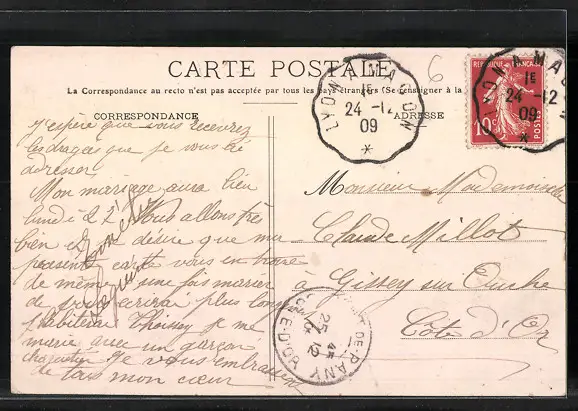 CARTE POSTALE
La Correspondance au recto n'est pas acceptée par tous les pays étrangers (Se renseigner à la
CORRESPONDANCE
ADRESSE
J'espère que vous recevrez
les dragées que je vous ai
adresser
Mon mariage aura lieu
lundi à 2 Nous allons très
bien et désire que ma
présente carte vous en
de même une fois marier
je vous écrirai plus long
j'habiterai Thoissey je me
marie avec un garçon
charcutier Je vous embrasse
de tous mon cœur
Monsieur Mademoiselle
Claude Millot
à Gissey sur Ouche
Côte d'Or
LYON A MACON
1E
24 -12
09
*
REPUBLIQUE FRANÇAISE
10c
POSTES
LYON MAC
1E
24 -12
09
*
DE-PANY
25 12
COTE-D'OR
6